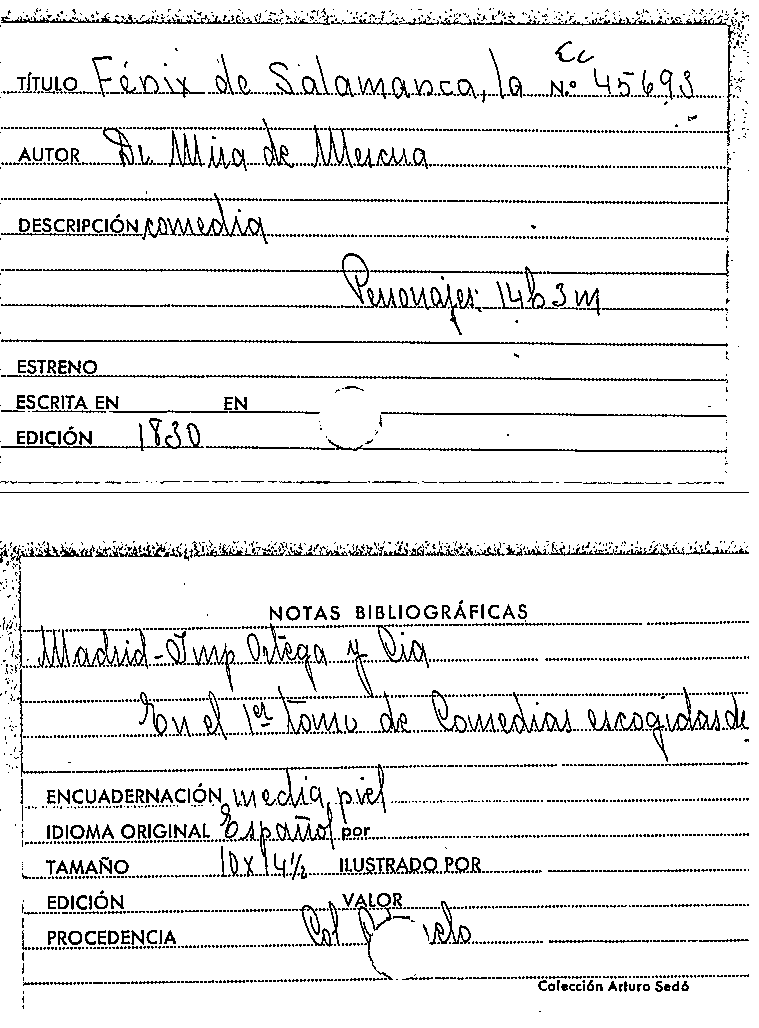 Ec
TÍTULO Fénix de Salamanca, la N.º 45693
AUTOR Dr. Mira de Mescua
DESCRIPCIÓN comedia
Personajes: 14h 3m
ESTRENO
ESCRITA EN EN
EDICIÓN 1830
NOTAS BIBLIOGRÁFICAS
Madrid - Imp Ortega y Cia
En el 1er tomo de Comedias escogidas de
ENCUADERNACIÓN media piel
IDIOMA ORIGINAL Español por
TAMAÑO 10 x 14½ ILUSTRADO POR
EDICIÓN VALOR
PROCEDENCIA Col
Colección Arturo Sedó